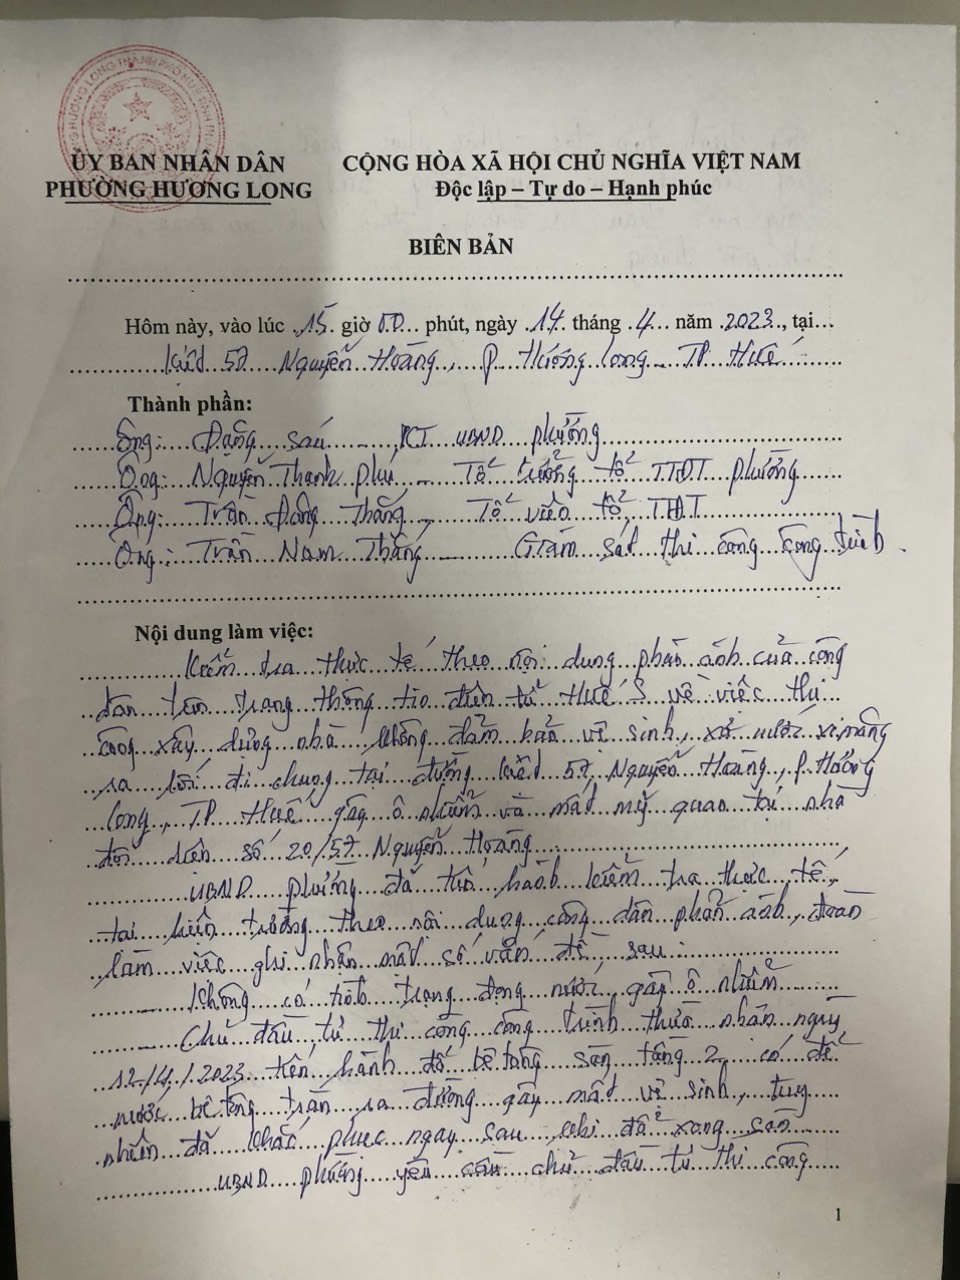 ỦY BAN NHÂN DÂN
PHƯỜNG HƯƠNG LONG
CỘNG HÒA XÃ HỘI CHỦ NGHĨA VIỆT NAM
Độc lập – Tự do – Hạnh phúc
BIÊN BẢN
Hôm này, vào lúc 15 giờ 00 phút, ngày 14 tháng 4 năm 2023, tại
kiệt 57 Nguyễn Hoàng, P. Hương Long – TP Huế
Thành phần:
Ông: Đặng Sáu – PCT UBND phường
Ông: Nguyễn Thanh Phú – Tổ trưởng tổ TTĐT phường
Ông: Trần Đăng Thắng, Tổ viên tổ TTĐT
Ông: Trần Nam Thắng – Giám sát thi công công trình.
Nội dung làm việc:
Kiểm tra thực tế theo nội dung phản ánh của công
dân trên trang thông tin điện tử Huế S về việc thi
công xây dựng nhà không đảm bảo vệ sinh, xả nước xi măng
ra lối đi chung tại đường kiệt 57, Nguyễn Hoàng, P. Hương
Long, TP Huế gây ô nhiễm và mất mỹ quan tại nhà
đối diện số 20/57 Nguyễn Hoàng
UBND phường đã tiến hành kiểm tra thực tế,
tại hiện trường theo nội dung công dân phản ánh, đoàn
làm việc ghi nhận một số vấn đề sau:
Không có tình trạng đọng nước gây ô nhiễm
Chủ đầu tư thi công công trình thừa nhận ngày
12/4/2023 tiến hành đổ bê tông sàn tầng 2 có để
nước bê tông tràn ra đường gây mất vệ sinh, tuy
nhiên đã khắc phục ngay sau khi đổ xong sàn
UBND phường yêu cầu chủ đầu tư thi công
1